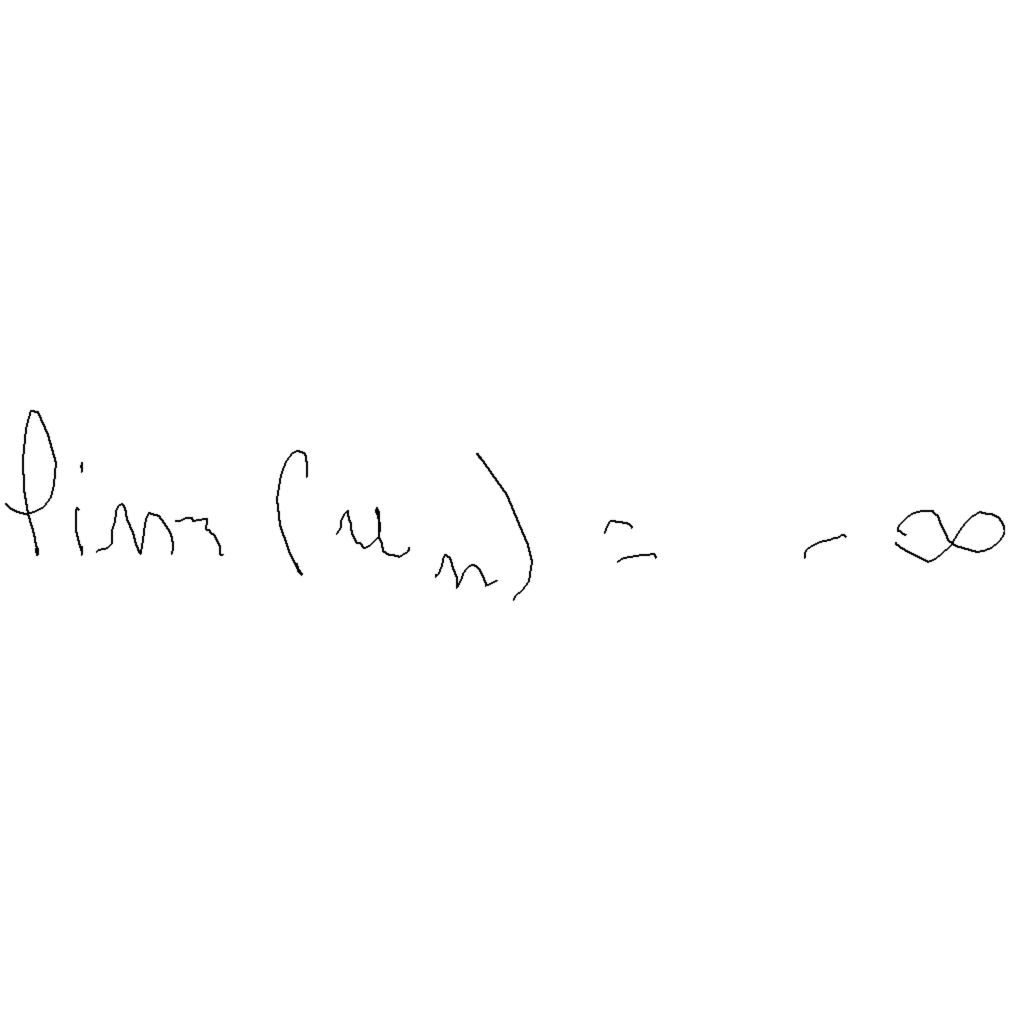 lim (uₙ) = - ∞